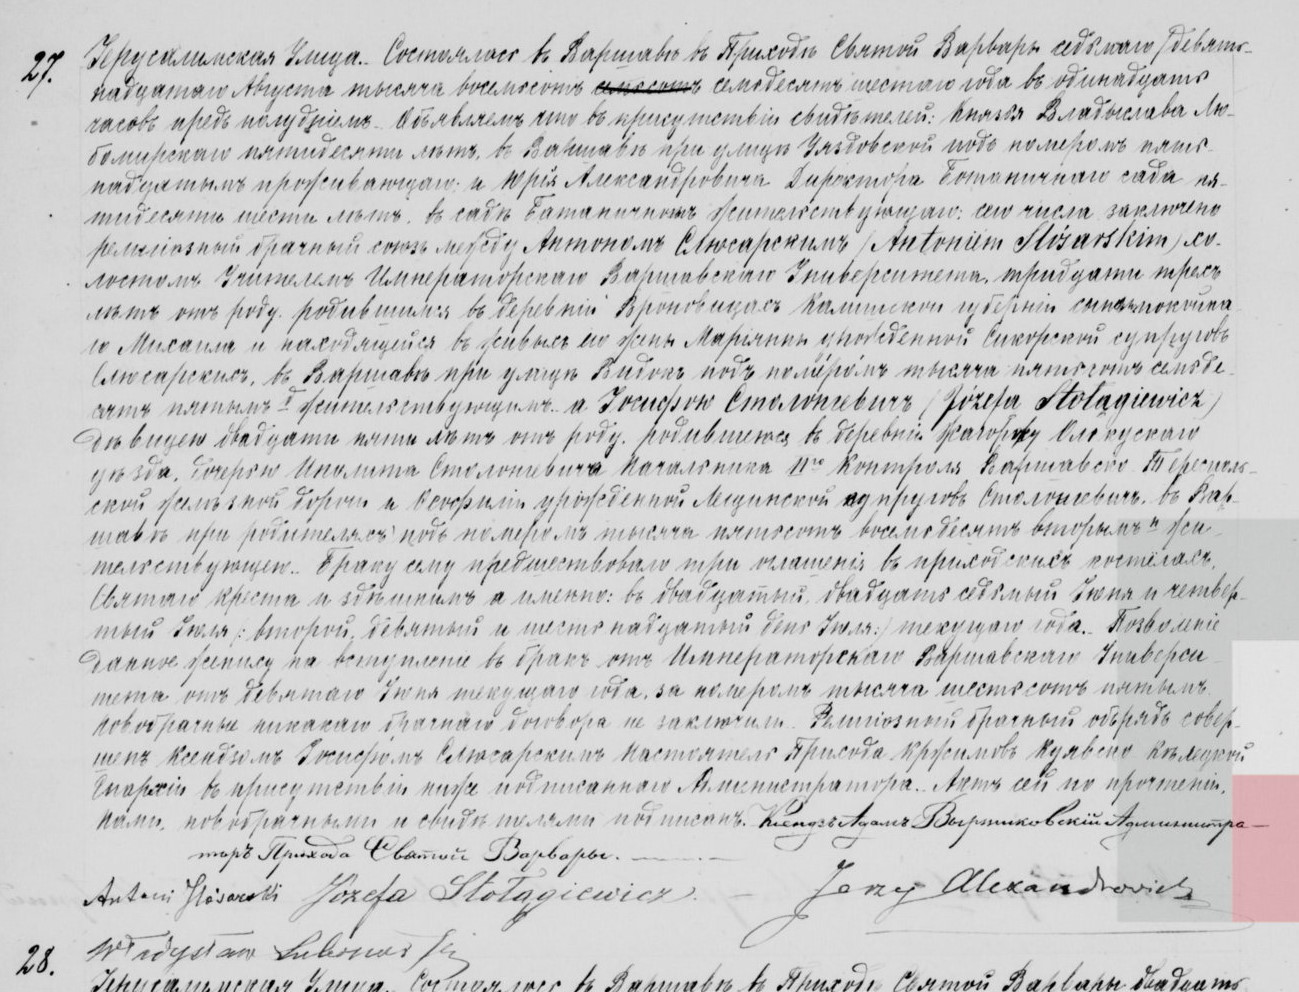 27. Іерусалимская Улица.. Состоялось въ Варшавѣ въ Приходѣ Святой Варвары седьмаго /девят-
надцатаго Августа тысяча восемьсотъ семьдесятъ шестаго года въ одинадцать
часовъ предъ полуднемъ. Объявляемъ что въ присутствіи свидѣтелей: Князя Владыслава Лю-
бомирскаго пятидесяти лѣтъ, въ Варшавѣ при улицѣ Уяздовской подъ номеромъ пят-
надцатымъ проживающаго; и Юрія Александровича Директора Ботаничнаго сада пя-
тидесяти шести лѣтъ, въ садѣ Ботаничномъ жительствующаго: сего числа заключено
религіозный брачный союзъ между Антономъ Слюсарскимъ /Antonim Ślósarskim/ хо-
лостомъ Учителемъ Императорскаго Варшавскаго Университета, тридцати трехъ
лѣтъ отъ роду, родившимся въ деревнѣ Вроновицахъ Калишской губерніи сыномъ покойна-
го Михаила и находящейся въ живыхъ его жены Маріянны урожденной Сикорской супруговъ
Слюсарскихъ, въ Варшавѣ при улицѣ Видокъ подъ номеромъ тысяча пятьсотъ семьде-
сятъ пятымъ жительствующимъ.. а Іосифою Столонгевичъ /Józefa Stołągiewicz/
Дѣвицею двадцати пяти лѣтъ отъ роду, родившеюся въ деревнѣ Олькускаго
уѣзда, дочерью Иполита Столонгевича Начальника Контроля Варшавско Тереспол-
ской желѣзной дороги и Ѳеофили урожденной супруговъ Столонгевичъ, въ Вар-
шавѣ при родителяхъ подъ номеромъ тысяча пятьсотъ восемьдесятъ вторымъ жи-
тельствующею.. Браку сему предшествовало три оглашенія въ приходскихъ костелахъ,
Святаго Креста и здѣшнимъ а именно: въ двадцатый, двадцать седьмый Іюня и четвер-
тый Іюля /: второй, девятый и шестнадцатый день Іюля:/ текущаго года.. Позволеніе
Данное жениху на вступленіе въ бракъ отъ Императорскаго Варшавскаго Универси-
тета отъ девятаго Іюня текущаго года, за номеромъ тысяча шестьсотъ пятымъ.
Новобрачные никакаго брачнаго договора не заключили. Религіозный брачный обрядъ совер-
шенъ Ксендзомъ Іосифомъ Слюсарскимъ Настоятель Прихода Кѣлецкой
Епархіи въ присутствіи ниже подписаннаго Администратора.. Актъ сей по прочтеніи,
Нами, новобрачными и свидѣтелями подписанъ. Ксендзъ Адамъ Выржиковскій Администра-
торъ Прихода Святой Варвары.
Antoni Ślósarski Józefa Stołągiewicz. Jerzy Alexandrowicz
28. Władysław Lubomirski
Іерусалимская Улица.. Состоялось въ Варшавѣ въ Приходѣ Святой Варвары двадцать